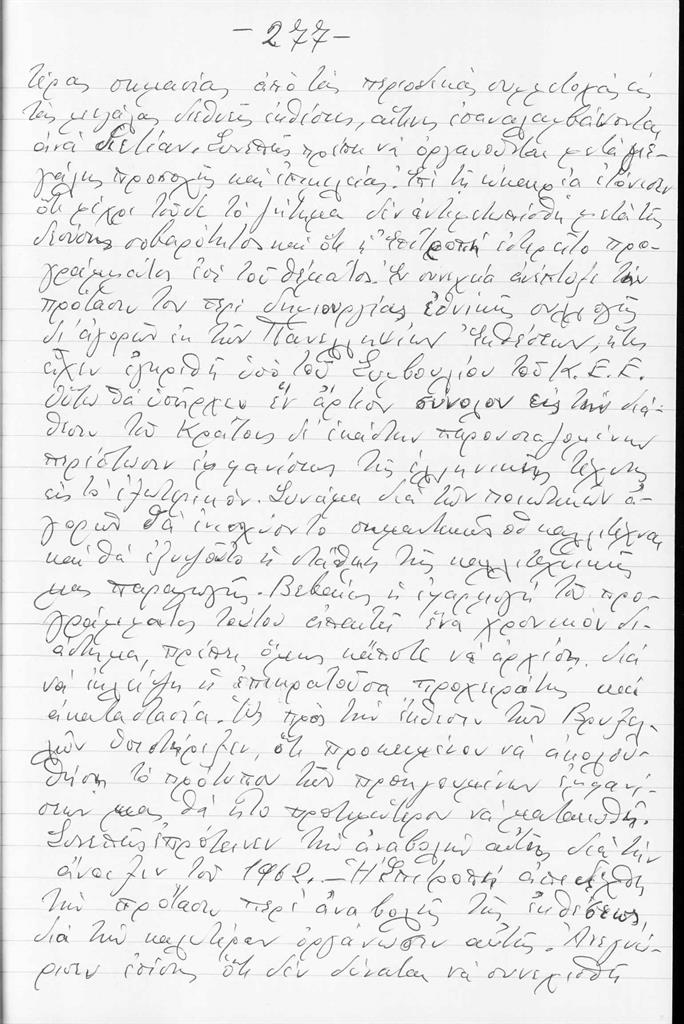 - 277 -
τέρας σημασίας ἀπό τάς περιοδικάς συμμετοχάς εἰς
τάς μεγάλας διεθνεῖς ἐκθέσεις, αἵτινες ἐπαναλαμβάνονται
ἀνά διετίαν. Συνεπῶς πρέπει νά ὀργανοῦνται μετά με-
γάλης προσοχῆς καί ἐπιμελείας. Ἐπί τῇ εὐκαιρίᾳ ἐτόνισεν
ὅτι μέχρι τοῦδε τό ζήτημα δέν ἀντιμετωπίσθη μετά τῆς
δεούσης σοβαρότητος καί ὅτι ἡ Ἐπιτροπή ἐστερεῖτο προ-
γράμματος ἐπί τοῦ θέματος. Ἐν συνεχείᾳ ἀνέπτυξε τήν
πρότασίν του περί δημιουργίας ἐθνικῆς συλλογῆς
δι' ἀγορῶν ἐκ τῶν Πανελληνίων Ἐκθέσεων, ἥτις
εἶχεν ἐγκριθῆ ὑπό τοῦ Συμβουλίου τοῦ Κ.Ε.Ε.
Οὕτω θά ὑπῆρχεν ἕν ἄρτιον σύνολον εἰς τήν διά-
θεσιν τοῦ Κράτους δι' ἑκάστην παρουσιαζομένην
περίπτωσιν ἐμφανίσεως τῆς ἑλληνικῆς τέχνης
εἰς τό ἐξωτερικόν. Συνάμα διά τῶν ποιοτικῶν ἀ-
γορῶν θά ἐνισχύοντο σημαντικῶς οἱ καλλιτέχναι
καί θά ἐξυψοῦτο ἡ στάθμη τῆς καλλιτεχνικῆς
μας παραγωγῆς. Βεβαίως ἡ ἐφαρμογή τοῦ προ-
γράμματος τούτου ἀπαιτεῖ ἕνα χρονικόν δι-
άστημα, πρέπει ὅμως κάποτε νά ἀρχίσῃ διά
νά ἐκλείψῃ ἡ ἐπικρατοῦσα προχειρότης καί
ἀκαταστασία. Ὡς πρός τήν ἔκθεσιν τῶν Βρυξελ-
λῶν ὑπεστήριξεν, ὅτι προκειμένου νά ἀκολου-
θήσῃ τό πρότυπον τῶν προηγουμένων ἐμφανί-
σεών μας, θά ἦτο προτιμώτερον νά ματαιωθῇ.
Συνεπῶς ἐπρότεινεν τήν ἀναβολήν αὐτῆς διά τήν
ἄνοιξιν τοῦ 1962. - Ἡ Ἐπιτροπή ἀπεδέχθη
τήν πρότασιν περί ἀναβολῆς τῆς ἐκθέσεως,
διά τήν καλυτέραν ὀργάνωσιν αὐτῆς. Ἀνεγνώ-
ρισεν ἐπίσης ὅτι δέν δύναται νά συνεχισθῇ